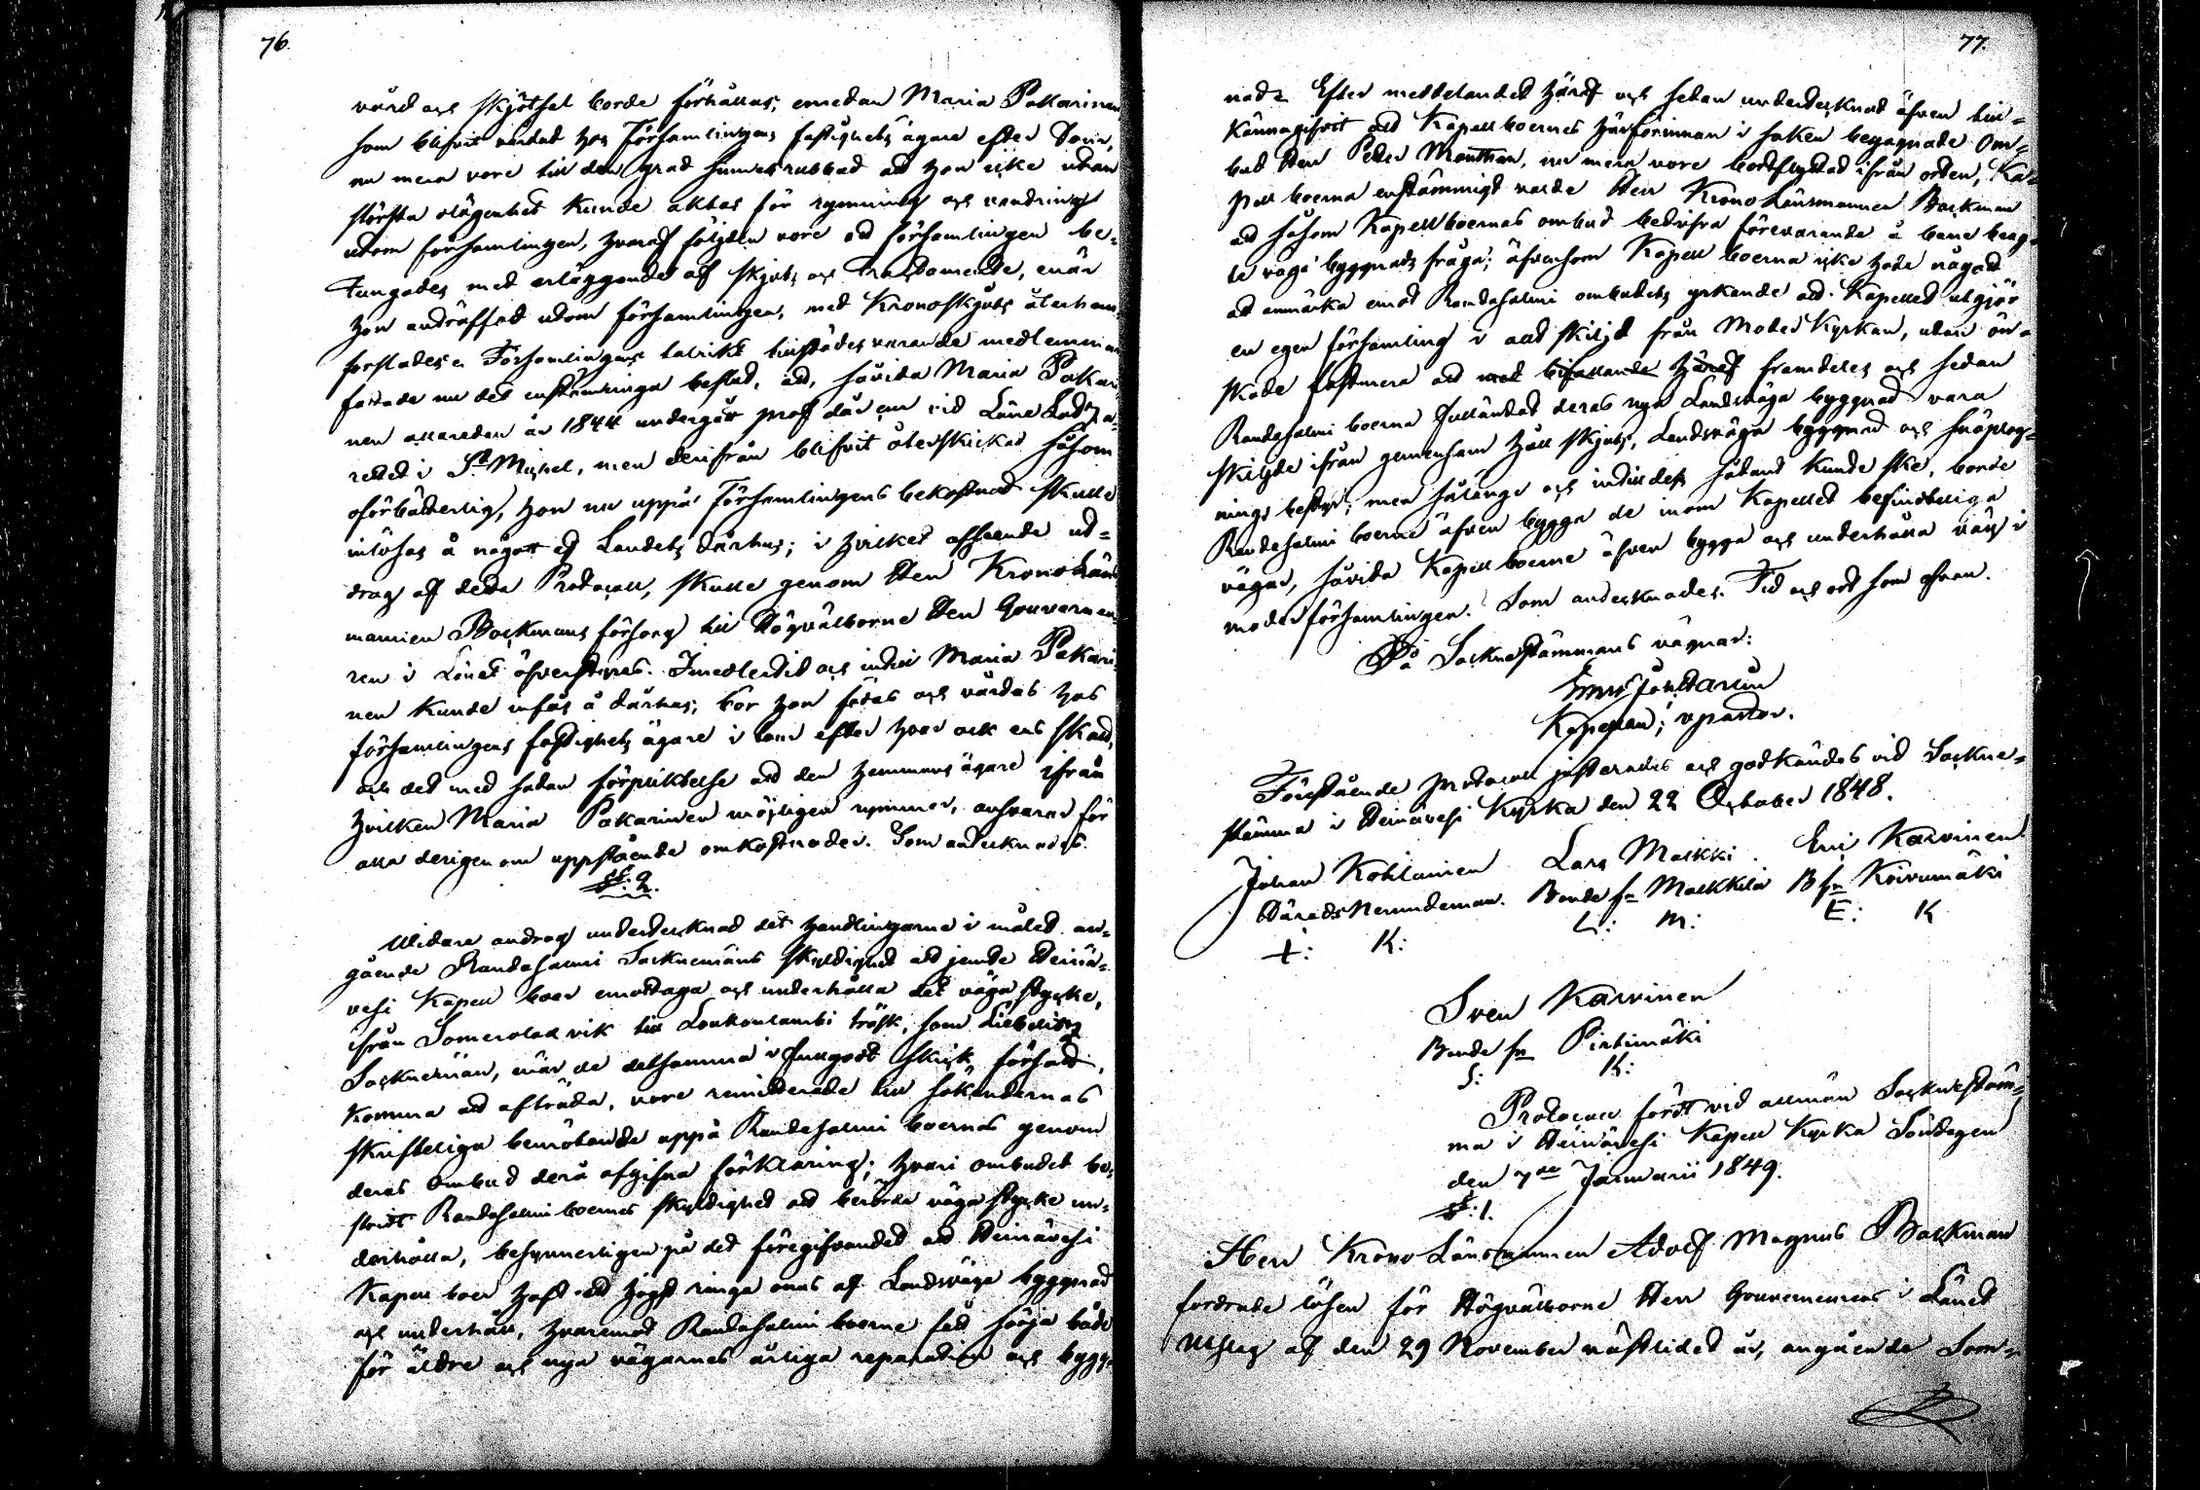 76.
vård och skjötsel borde förhållas; emedan Maria Pakarinen
som blifvit vårdad hos Församlingens fastighets ägare efter tour,
nu mera vore till den grad sinnesrubbad att hon icke utan
största olägenhet kunde aktas för rymning och vandring
utom församlingen, hvaraf följden vore att församlingen be-
tungades med erläggande af skjuts och Tractamente, enär
hon anträffad utom församlingen, med Kronoskjuts återhem
forslades. Församlingens talrikt tillstädesvarande medlemmar
fattade nu det enstämmiga beslut, att, såvida Maria Pakari
nen allaredan år 1844 undergår prof dårum vid Läne Lazga-
rettet i St Michel, men derifrån blifvit återskickad såsom
oförbätterlig, hon nu uppå Församlingens bekostnad skulle
inlösas å något af Landets dårhus; i hvilket afseende ut-
drag af detta Protocoll, skulle genom Herr Krono Läns
mannen Backmans försorg till Högvälborne Herr Gouverneu
ren i Länet öfversändas. Imedlertid och intill Maria Pakari
nen kunde infås å dårhus, bör hon födas och vårdas hos
församlingens fastighets ägare i tour efter hvar och ens skatt,
och det med sådan förpliktelse att den hemmans ägare ifrån
hvilken Maria Pakarinen möjligen rymmer, ansvarar för
alla derigenom uppstående omkostnader. Som antecknades.
§: 2.
Widare androg undertecknad det handlingarne i målet an-
gående Randasalmi Socknemäns skyldighet att jemte Heinä-
vesi Kapell boer emottaga och underhålla det väga stycke,
ifrån Someroladvik till Loukonlambi träsk, som Libelitz
Socknemän, enär de detsamma i fullgodt skick försatt,
komma att afträda, vore remitterade till sökandernas
skrifteliga bemötande uppå Randasalmi boernas genom
deras ombud derå afgifna förklaring; hvari ombudet be-
stridt Randasalmi boernes skyldighet att berörde väga stycke un-
derhålla, besynnerligen på det föregifvandet att Heinävesi
Kapell boer haft att högst ringa onus af Landsväga byggnad
och underhåll, hvaremot Randasalmi boerne fått sörja både
för äldre och nya vägarnes årliga reparation och bygg-
77.
nad. Efter meddelandet häraf och sedan undertecknad äfven till-
kännagifvit att Kapell boernes härförinnan i saken begagnade Om-
bud Herr Peter Manthan, nu mera vore bortflyttad ifrån orten, Ka-
pell boerna enstämmigt valde Herr Krono Länsmannen Backman
att såsom Kapellboernas ombud bedrifva förevarande å bane brag-
te väga byggnads fråga; äfvensom Kapell boerna icke hade något
att anmärka emot Randasalmi ombudets yrkande att Kapellet utgjör
en egen församling i allt skiljd från Moder Kyrkan, utan ön-
skade fastmera att med bifallande häraf framdeles och sedan
Randasalmi boerna fulländat deras nya Landsväga byggnad vara
skiljde ifrån gemensam håll skjuts, Landsväga byggnad och snöplog-
nings bestyr; men sålänge och intilldess sådant kunde ske, borde
Randasalmi boerne äfven bygga de inom Kapellet befindteliga
vägar, såvida Kapell boerne äfven bygga och underhålla väg i
moderförsamlingen. Som antecknades. Tid och ort som ofvan.
På Sockne Stämmans vägnar:
Kapellan; v pastor.
Förestående protocoll justerades och godkändes vid Sockne-
stämma i Heinävesi Kyrka den 22 October 1848.
Johan Kohlainen Lars Malkki. Eric Karvinen
Härads Nämndeman. Bonde fn Malkkila B fn Koivumäki
I: K: L: M: E: K
Sven Karvinen
Bonde fn Pirtimäki
S: K:
Protocoll fördt vid allmän Socknestäm-
ma i Heinävesi Kapell Kyrka Söndagen
den 7de Januarii 1849.
§: 1.
Herr Krono Länsmannen Adolf Magnus Backman
fordrade lösen för Högvälborne Herr Gouverneurens i Länet
Utslag af den 29 November nästlidet år, angående Som-